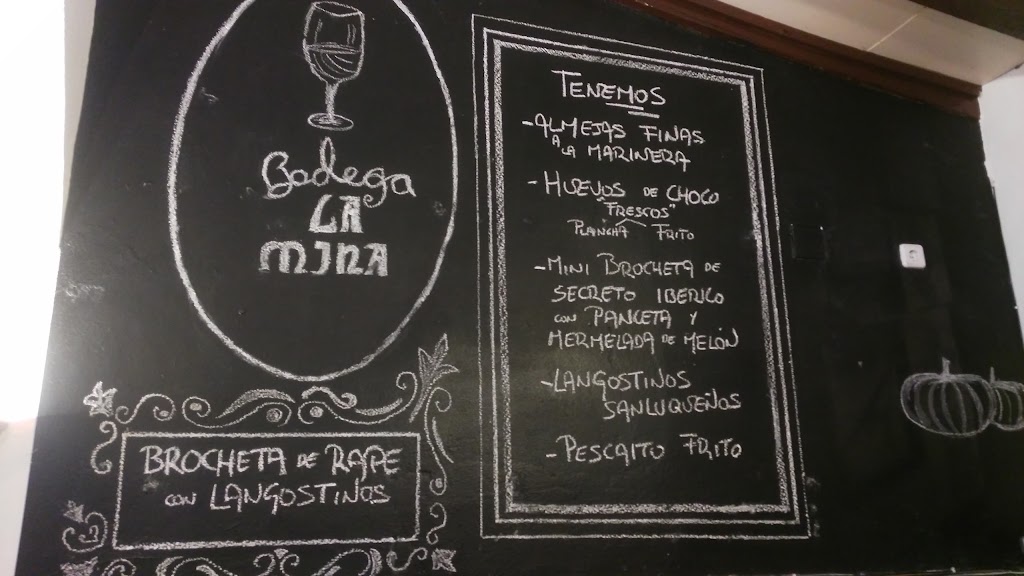 Bodega
LA
MINA
BROCHETA DE RAPE
CON LANGOSTINOS
TENEMOS
- ALMEJAS FINAS
A LA MARINERA
- HUEVOS DE CHOCO
"FRESCOS"
PLANCHA FRITO
- MINI BROCHETA DE
SECRETO IBERICO
CON PANCETA Y
MERMELADA DE MELÓN
- LANGOSTINOS
SANLUQUEÑOS
- PESCAITO FRITO